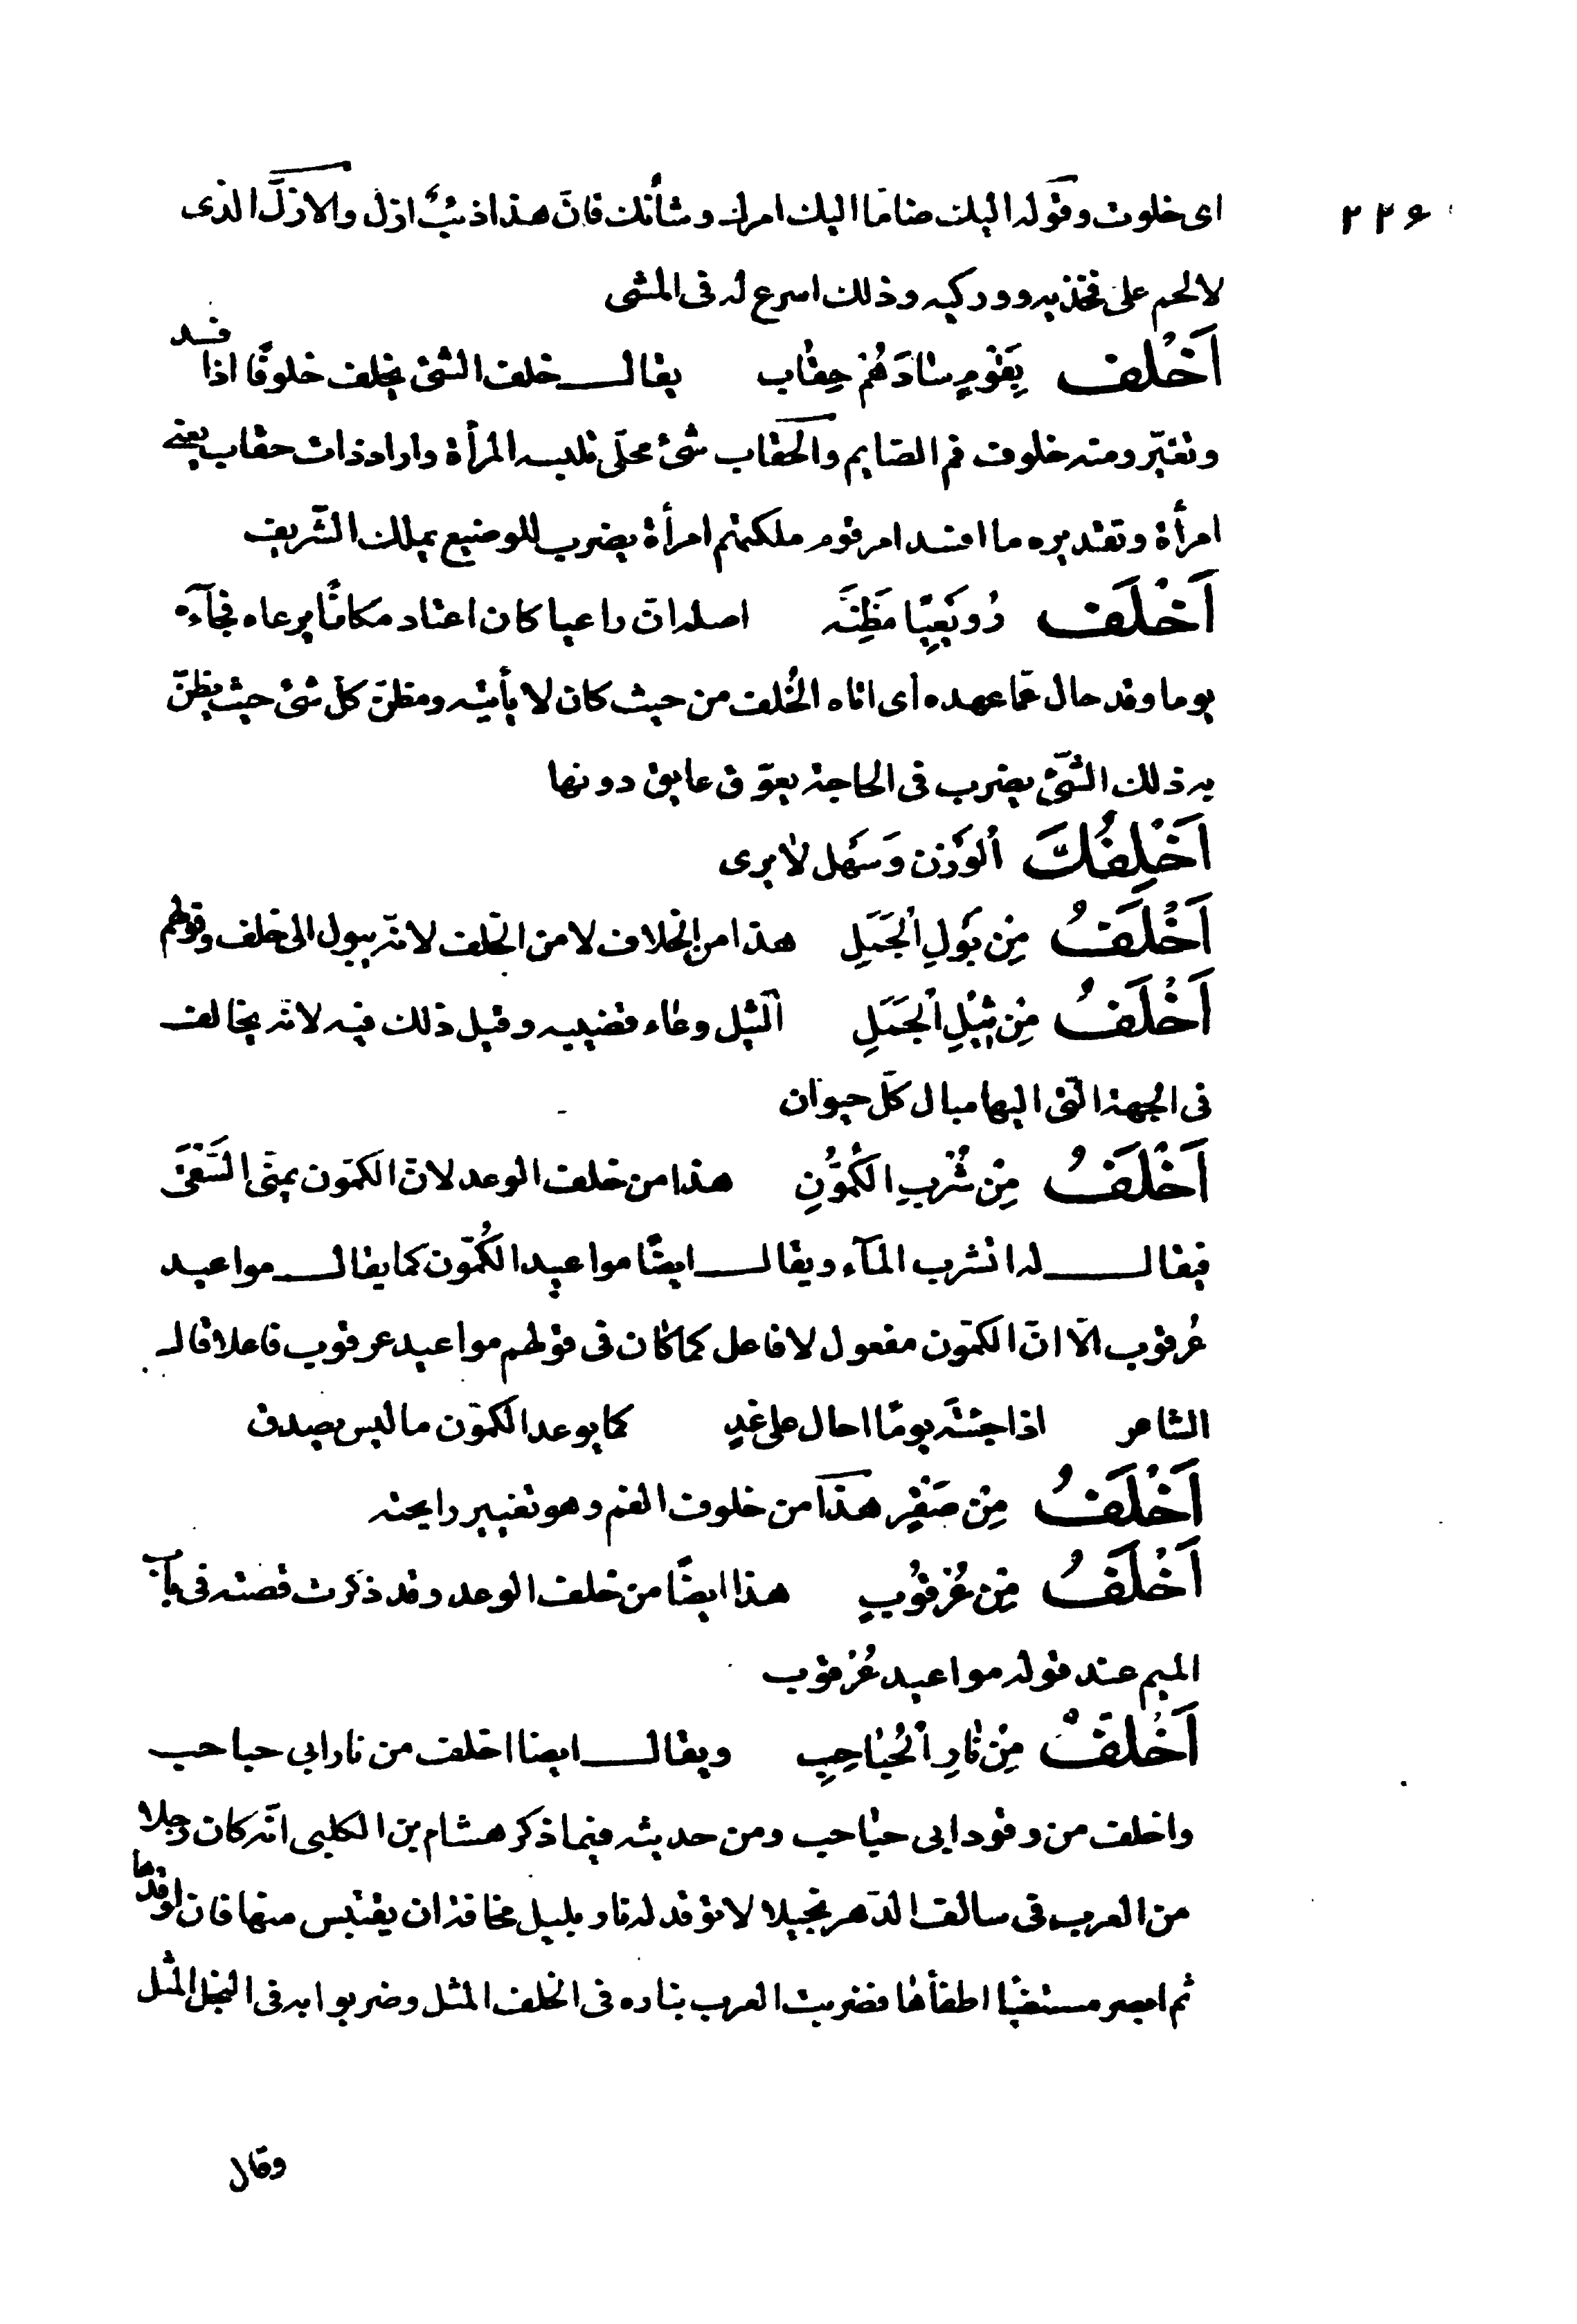 ٢٢۶
اى خلوت وقوله اليك ضامّا اليك امرك وشأنك فانّ هذا ذئبٌ ازلّ والازلّ الذى
لا لحم على فخذيه ووركيه وذلك اسرع له فى المشى
اَخْلِف بِقَوْمٍ سٰادَهُمْ حِقٰاب يقال خلف الشئ يخلف خلوفًا اذا فسد
وتغيّر ومنه خلوف فم الصايم والحقاب شئ محلّى تلبسه المرأة واراد ذات حقاب يعنى
امرأة وتقديره ما افسد امر قوم ملكتهم امرأة يضرب للوضيع يملك الشّريف
اَخْلَفَ رُوَيْعِيًا مَظِنَّه اصله انّ راعيا كان اعتاد مكانًا يرعاه فجآءه
يوما وقد حال عمّا عهده اى اتاه الخُلف من حيث كان لا يأتيه ومظنّ كل شئ حيث يظنّ
به ذلك الشّئ يضرب فى الحاجة يعوّق عايق دونها
اَخْلِفُكَ الْوَزْن وَسَهْل لٰا يرى
اَخْلَفُ مِنْ بَوْلِ الْجَمَلِ هذا من الخلاف لا من الخلف لانّه يبول الى خلف وقولهم
اَخْلَفُ مِنْ ثِيْلِ الْجَمَلِ الثيل وعاء قضيبه وقيل ذلك فيه لانّه يخالف
فى الجهة الّتى اليها مبال كلّ حيوان
اَخْلَفُ مِنْ شُرْبِ الكَمُّوْنِ هذا من خلف الوعد لانّ الكمّون يمنّى السَّقْىَ
فيقال له اتشرب المآء ويقال ايضًا مواعيد الكُمّون كما يقال مواعيد
عُرقوب الّا انّ الكمّون مفعول لا فاعل كما كان فى قولهم مواعيد عرقوب فاعلا قال
الشاعر اذا جئتَه يومًا احال على غدٍ كما يوعد الكمّون ما ليس يصدق
اَخْلَفُ مِنْ صَقْرٍ هذا من خلوف الفم وهو تغيير رايحته
اَخْلَفُ مِنْ عُرْقُوْبٍ هذا ايضًا من خلف الوعد وقد ذكرت قصّته فى باب
الميم عند قوله مواعيد عُرْقوب
اَخْلَفُ مِنْ نٰارِ الْحُبٰاحِبِ ويقال ايضا اخلف من نار ابى حباحب
واخلف من وقود ابى حباحب ومن حديثه فيما ذكر هشام بن الكلبى انّه كان رجلا
من العرب فى سالف الدّهر بخيلا لا توقد له نار بليل مخافة ان يقتبس منها فان اوقدها
ثم ابصر مستضيئا اطفأها فضربت العرب بناره فى الخلف المثل وضربوا به فى البخل المثل
وقال